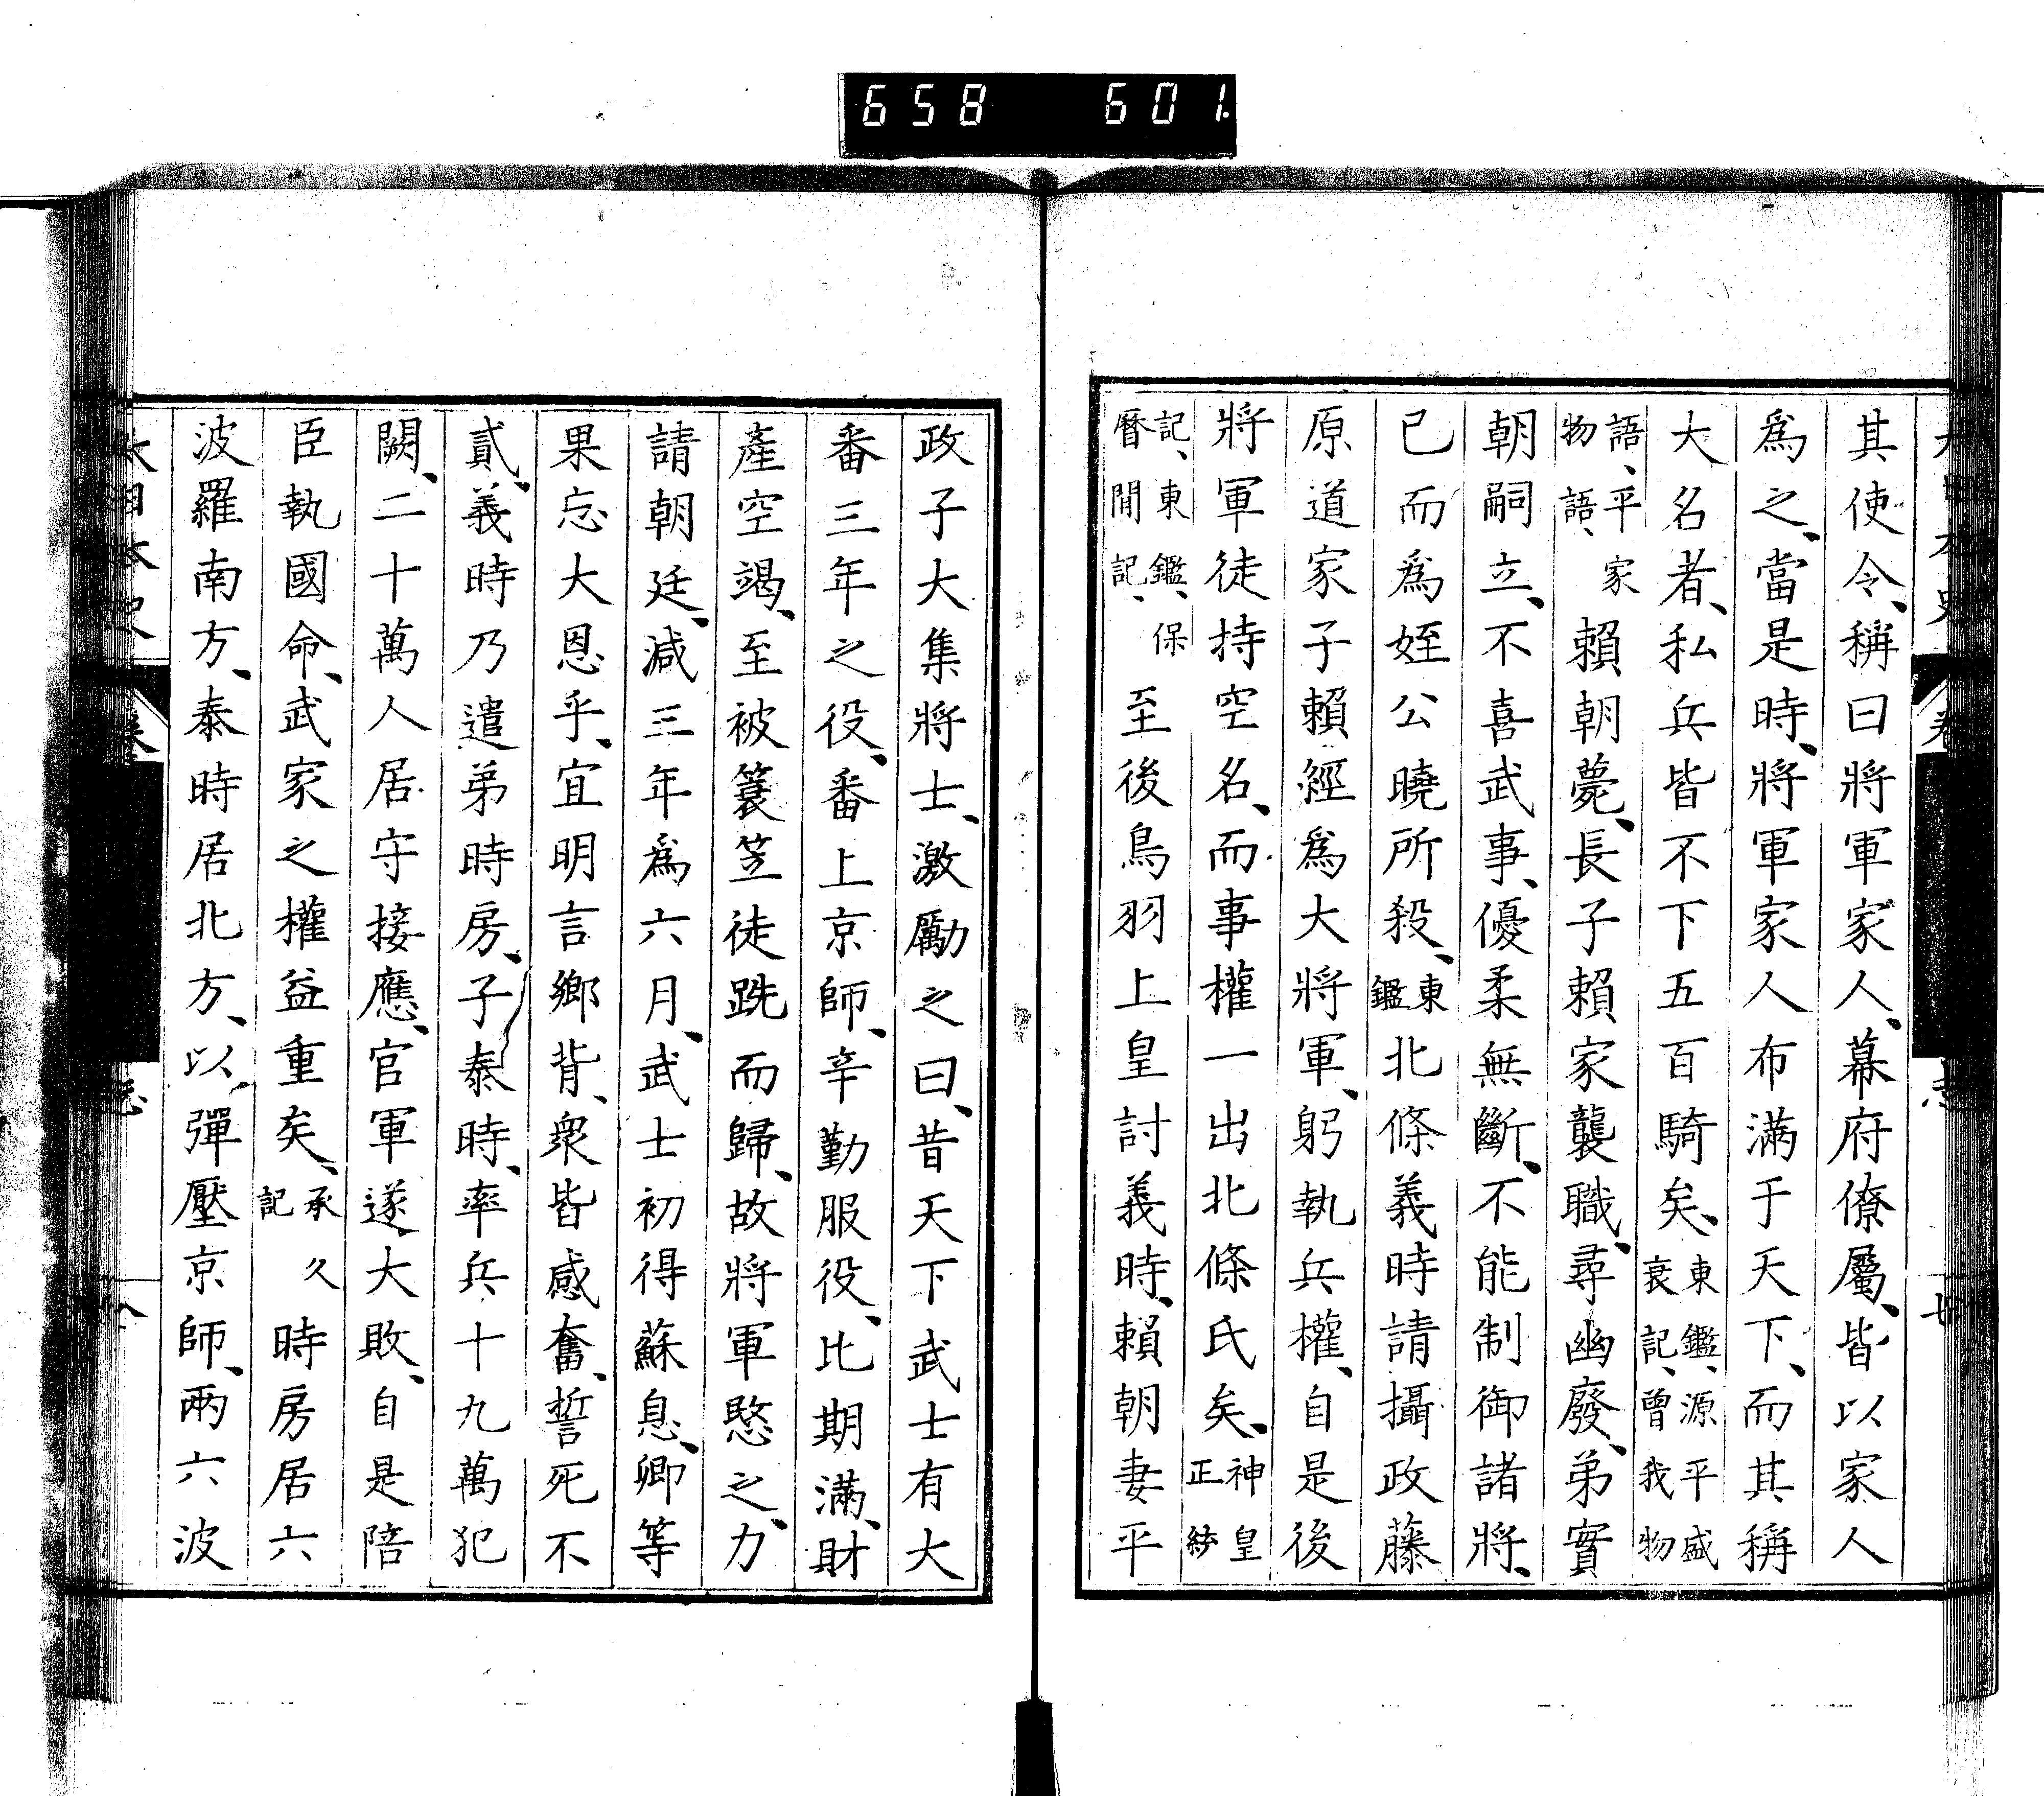 658 601
其使令、稱曰將軍家人、幕府僚屬、皆以家人
爲之、當是時、將軍家人布滿于天下、而其稱
大名者、私兵皆不下五百騎矣、東鑑、源平盛衰記、曾我物
語、平家物語、賴朝薨、長子賴家襲職、尋幽廢、弟實
朝嗣立、不喜武事、優柔無斷、不能制御諸將、
已而爲姪公曉所殺、東鑑北條義時請攝政藤
原道家子賴經爲大將軍、躬執兵權、自是後
將軍徒持空名、而事權一出北條氏矣、神皇正統
記、東鑑、保曆閒記、至後鳥羽上皇討義時、賴朝妻平
政子大集將士、激勵之曰、昔天下武士有大
番三年之役、番上京師、辛勤服役、比期滿、財
產空竭、至被簑笠徒跣而歸、故將軍愍之、力
請朝廷、減三年爲六月、武士初得蘇息、卿等
果忘大恩乎、宜明言鄉背、衆皆感奮、誓死不
貳、義時乃遣弟時房、子泰時、率兵十九萬犯
闕、二十萬人居守接應、官軍遂大敗、自是陪
臣執國命、武家之權益重矣、承久記時房居六
波羅南方、泰時居北方、以彈壓京師、兩六波